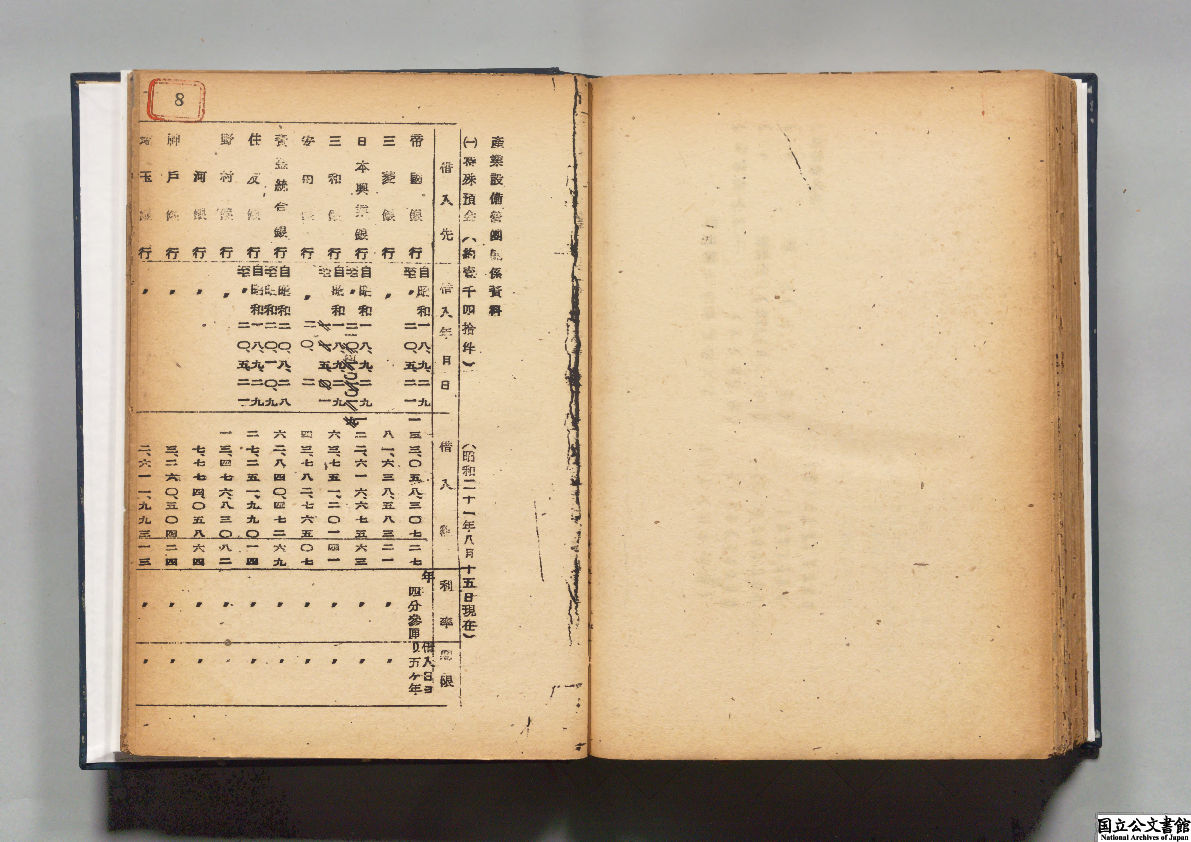 産業設備營團關係資料
㈠特殊預金(約壹千四拾件)
(昭和二十一年八月十五日現在)
借入先 借入年月日 借入 利率 期限
帝國銀行 自昭和一八、九、二九 至〃二〇、五、二一 一三三、〇五八、三〇七二七 年四分參厘 借入日ヨリ五ケ年
三菱銀行 〃 八一、六三八、五八三二一 〃 〃
日本興業銀行 自昭和一八、九、二九 二二、六一六、六七五六三 〃 〃
三和銀行 自昭和一八、九、二九 六三、七五一、二〇一四一 〃 〃
安田銀行 〃 二〇、二 四三、七八二、七六五〇七 〃 〃
資金統合銀行 自昭和二〇、八、二八 至昭和二〇、一〇、九 六二、八四〇、四七二六九 〃 〃
住友銀行 自昭和一八、九、二九 至〃二〇、五、二一 二七、二五一、九九〇一四 〃 〃
野村銀行 〃 一三、四七六、八三〇八二 〃 〃
河銀行 〃 七、七七四、〇五八六四 〃 〃
神戸銀行 〃 三、二六〇、五〇四二四 〃 〃
埼玉銀行 〃 二、六一一、九九三一三 〃 〃
8
国立公文書館
National Archives of Japan